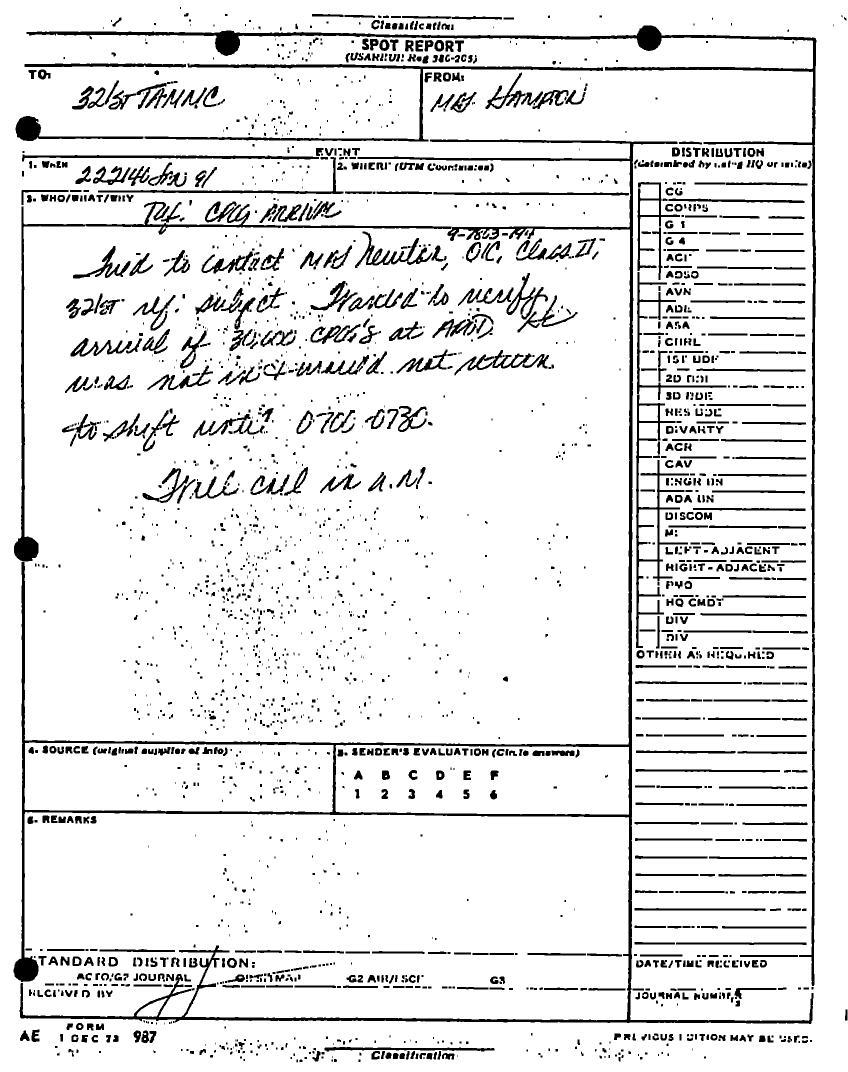 Classification
SPOT REPORT
(USAREUR Reg 380-205)
TO:
321ST TAMMC
FROM:
MAJ HAMPTON
EVENT
1. WHEN
222140 JAN 91
2. WHERE (UTM Coordinates)
3. WHO/WHAT/WHY
Ref: CPOG ARRIVAL
Tried to contact MAJ Newton, OIC, Class II,
321st ref: subject. Wanted to verify
arrival of 30,000 CPOG's at He
was not in & would not return
to shift until 0700-0730.
Will call in a.m.
DISTRIBUTION
(determined by using HQ or units)
CG
CORPS
G 1
G 4
AVN
ADE
ASA
CHRL
1ST BDE
2D BDE
3D BDE
RES BDE
DIVARTY
ACR
CAV
ENGR BN
ADA BN
DISCOM
MI
LEFT-ADJACENT
RIGHT-ADJACENT
PMO
HQ CMDT
DIV
DIV
OTHER AS REQUIRED
4. SOURCE (original supplier of info)
5. SENDER'S EVALUATION (Circle answers)
A B C D E F
1 2 3 4 5 6
6. REMARKS
STANDARD DISTRIBUTION:
JOURNAL G2 G3
RECEIVED BY
DATE/TIME RECEIVED
JOURNAL NUMBER
AE FORM 1 DEC 73 987
PREVIOUS EDITION MAY BE USED.
Classification